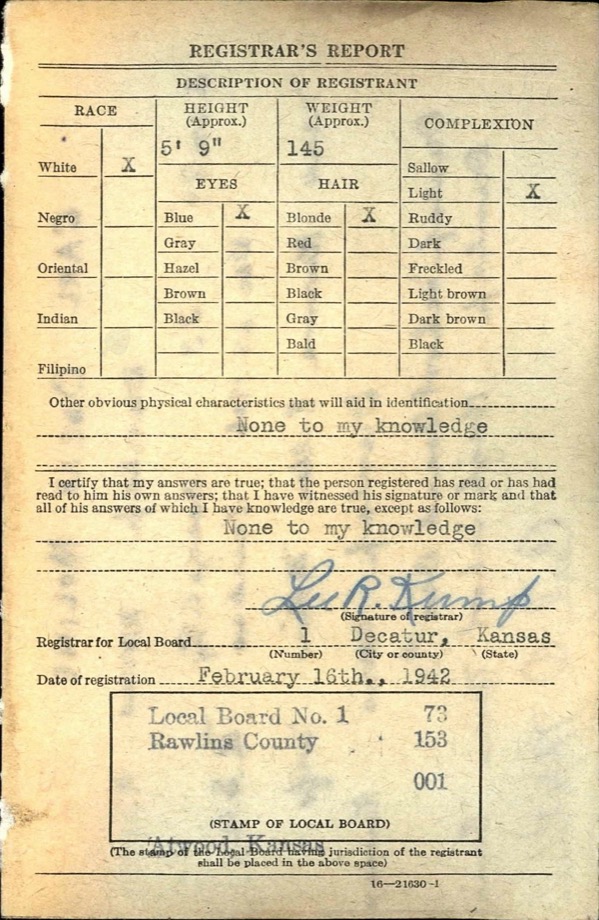 REGISTRAR'S REPORT
DESCRIPTION OF REGISTRANT
RACE
HEIGHT (Approx.)
WEIGHT (Approx.)
COMPLEXION
5' 9"
145
White X
EYES
HAIR
Sallow
Light X
Negro
Blue X
Blonde X
Ruddy
Gray
Red
Dark
Oriental
Hazel
Brown
Freckled
Brown
Black
Light brown
Indian
Black
Gray
Dark brown
Bald
Black
Filipino
Other obvious physical characteristics that will aid in identification
None to my knowledge
I certify that my answers are true; that the person registered has read or has had
read to him his own answers; that I have witnessed his signature or mark and that
all of his answers of which I have knowledge are true, except as follows:
None to my knowledge
Lee R. Kump
(Signature of registrar)
Registrar for Local Board 1 Decatur, Kansas
(Number) (City or county) (State)
Date of registration February 16th., 1942
Local Board No. 1 73
Rawlins County 153
001
(STAMP OF LOCAL BOARD)
Atwood, Kansas
(The stamp of the Local Board having jurisdiction of the registrant
shall be placed in the above space)
16—21630-1